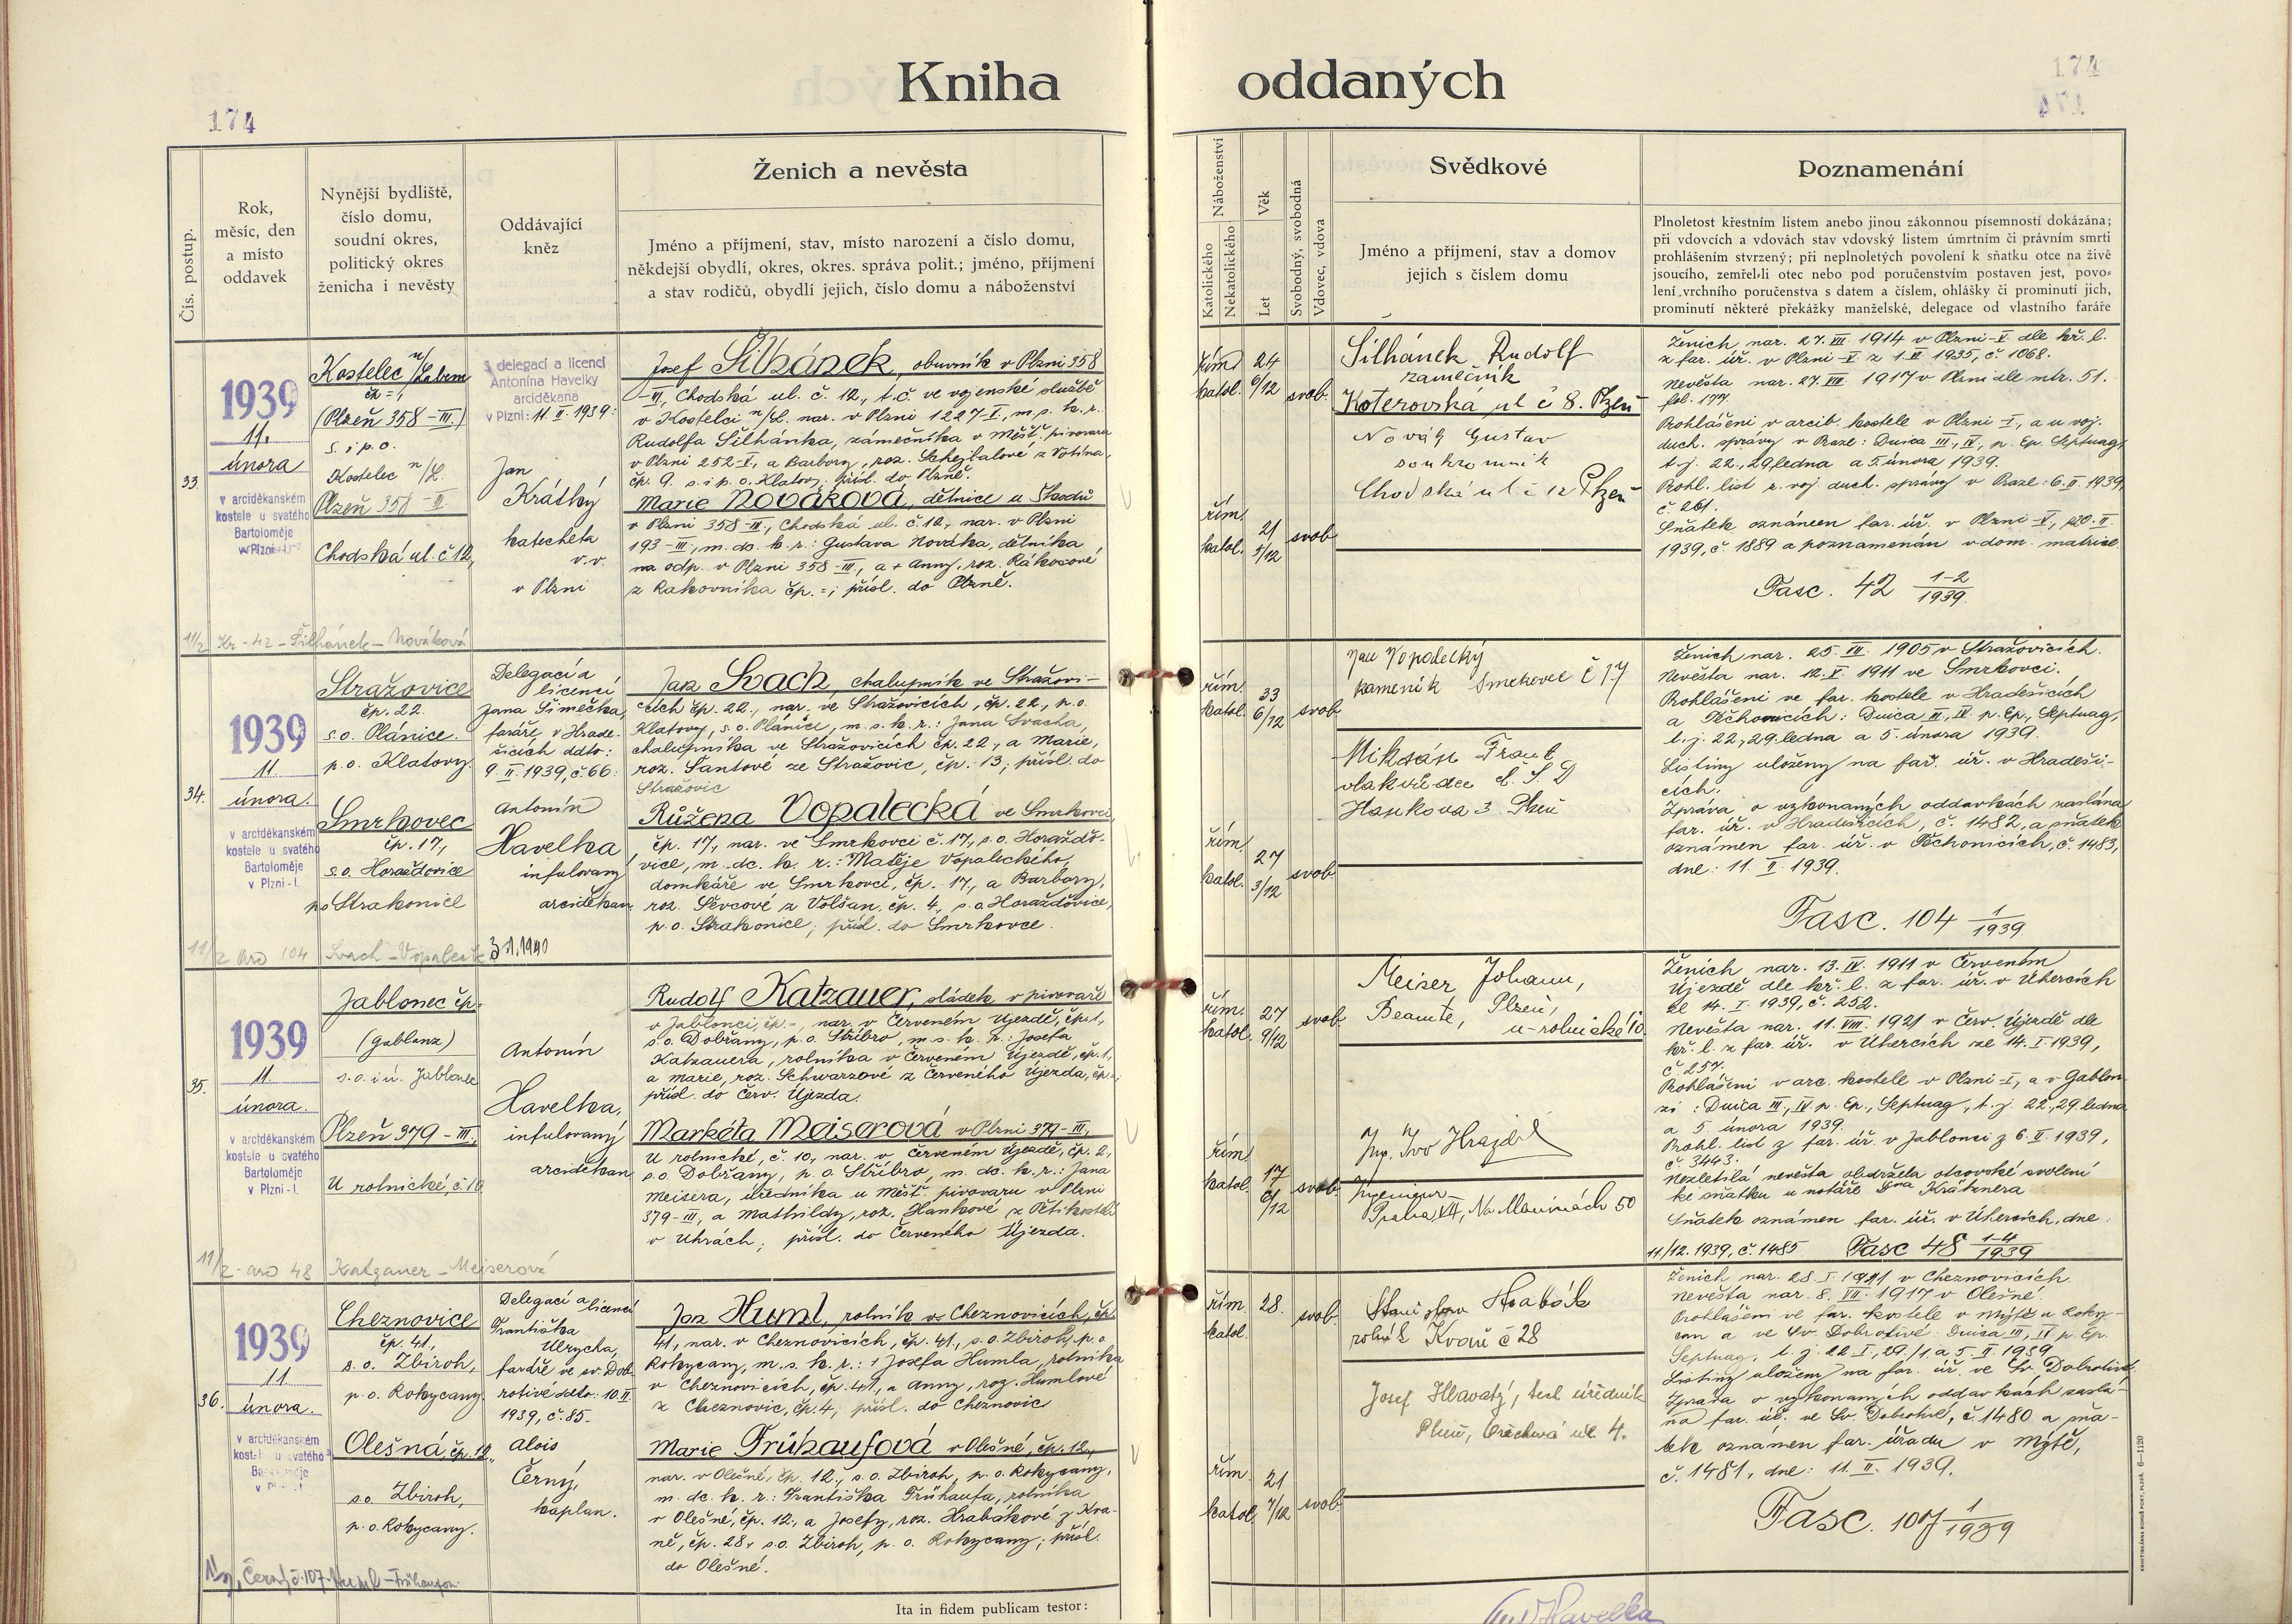 Kniha
oddaných
174
174
171
Čís. postup.
Rok,
měsíc, den
a místo
oddavek
Nynější bydliště,
číslo domu,
soudní okres,
politický okres
ženicha i nevěsty
Oddávající
kněz
Ženich a nevěsta
Jméno a příjmení, stav, místo narození a číslo domu,
někdejší obydlí, okres, okres. správa polit.; jméno, příjmení
a stav rodičů, obydlí jejich, číslo domu a náboženství
Náboženství
Katolického
Nekatolického
Věk
Let
Svobodný, svobodná
Vdovec, vdova
Svědkové
Jméno a příjmení, stav a domov
jejich s číslem domu
Poznamenání
Plnoletost křestním listem anebo jinou zákonnou písemností dokázána;
při vdovcích a vdovách stav vdovský listem úmrtním či právním smrti
prohlášením stvrzený; při neplnoletých povolení k sňatku otce na živě
jsoucího, zemřel-li otec nebo pod poručenstvím postaven jest, povo-
lení vrchního poručenstva s datem a číslem, ohlášky či prominutí jich,
prominutí některé překážky manželské, delegace od vlastního faráře
33.
1939
11.
února
v arciděkanském
kostele u svatého
Bartoloměje
v Plzni
Kostelec n/Labem
čp =,
(Plzeň 358-III.)
s. i p. o.
Kostelec n/L.
Plzeň 358-III.
Chodská ul. č 12,
S delegací a licencí
Antonína Havelky
arciděkana
v Plzni: 11. II. 1939:
Jan
Krátký
katecheta
v.v.
v Plzni
Josef Šilhánek, obuvník v Plzni 358
-III, Chodská ul. č. 12, t. č. ve vojenské službě
v Kostelci n/L. nar. v Plzni 1227-I, m. s. k. r.
Rudolfa Šilhánka, zámečníka v Měšť. pivovaru
v Plzni 252-I, a Barbory, roz. Schejbalové z
čp. 9. s. i p. o. Klatovy; přísl. do Plzně.
Marie Nováková, dělnice u Škodů
v Plzni 358-III, Chodská ul. č. 12, nar. v Plzni
193-III, m. dc. k. r.: Gustava Nováka, dělníka
na odp. v Plzni 358-III, a + Anny, roz. Rákosové
z Rakovníka čp. =; přísl. do Plzně.
řím.
katol.
24
6/12
svob.
řím.
katol.
21
5/12
svob.
Šilhánek Rudolf
zamečník
Koterovská ul č 8. Plzeň
Novák Gustav
soukromník
Chodská ul č 12 Plzeň
Ženich nar. 27. VII. 1914 v Plzni-V dle kř. l.
z far. úř. v Plzni-V z 1. II. 1935, č. 1068.
Nevěsta nar. 27. VIII. 1917 v Plzni dle mtr. 51.
fol. 177.
Prohlášeni v arcib. kostele v Plzni I, a u voj.
duch. správy v Praze: Duica III, IV, p. Ep. Septuag,
t. j. 22., 29. ledna a 5. února 1939.
Prohl. list z voj. duch. správy v Praze: 6. II. 1939,
č. 261.
Sňatek oznámen far. úř. v Plzni-V, 20. II.
1939, č. 1889 a poznamenán v dom. matrice.
Fasc. 42 1-2/1939
11/2 Kr-42-Šilhánek-Nováková
34.
1939
11.
února.
v arciděkanském
kostele u svatého
Bartoloměje
v Plzni-I.
Stražovice
čp. 22.
s. o. Plánice.
p. o. Klatovy.
Smrkovec
čp. 17,
s. o. Horažďovice
po Strakonice
Delegací a
licencí
Jana Šimečka,
faráře v Hrade-
šicích ddto:
9. II. 1939, č. 66:
Antonín
Havelka
infulovaný
arciděkan
Jan Svach, chalupník ve Stražovi-
cích čp. 22., nar. ve Stražovicích, čp. 22, p. o.
Klatovy, s. o. Plánice, m. s. k. r.: Jana Svacha,
chalupníka ve Stražovicích čp. 22, a Marie,
roz. Šantové ze Stražovic, čp. 13; přísl. do
Stražovic
Růžena Vopalecká ve Smrkovci
čp. 17, nar. ve Smrkovci č. 17, s. o. Horažďo-
vice, m. dc. k. r.: Matěje Vopaleckého,
domkáře ve Smrkovci, čp. 17, a Barbory,
roz. Ševcové z Volšan, čp. 4., s. o. Horažďovice,
p. o. Strakonice; přísl. do Smrkovce.
řím.
katol.
33
6/12
svob.
řím.
katol.
27
3/12
svob.
Jan Vopalecký
kameník Smrkovec č 17
Mikeán Frant
vlakvedce Č S D
Hankova 3 Plzeň
Ženich nar. 25. VII. 1905 v Stražovicích.
Nevěsta nar. 12. X. 1911 ve Smrkovci.
Prohlášeni ve far. kostele v Hradešicích
a Těchonicích: Duica III, IV p. Ep., Septuag,
t. j. 22., 29. ledna a 5. února 1939.
Listiny uloženy na far. úř. v Hradeši-
cích.
Zpráva o vykonaných oddavkách zaslána
far. úř. v Hradešicích, č. 1482, a sňatek
oznámen far. úř. v Těchonicích, č. 1483,
dne: 11. II. 1939.
Fasc. 104 1/1939
11/2 arc 104 Svach-Vopalecká 3.1.1940
35.
1939
11.
února.
v arciděkanském
kostele u svatého
Bartoloměje
v Plzni-I.
Jablonec čp=
(Gablonz)
s. o. i ú. Jablonec
Plzeň 379-III.,
U rolnické, č. 10
Antonín
Havelka,
infulovaný
arciděkan
Rudolf Katzauer, sládek v pivovaře
v Jablonci, čp.-, nar. v Červeném Újezdě, čp. 1,
s. o. Dobřany, p. o. Stříbro, m. s. k. r.: Josefa
Katzauera, rolníka v Červeném Újezdě, čp. 1,
a Marie, roz. Schwarzové z Červeného Újezda, čp.-;
přísl. do Červ. Újezda.
Markéta Meiserová v Plzni 379-III,
U rolnické, č. 10, nar. v Červeném Újezdě, čp. 2,
s. o Dobřany, p. o. Stříbro, m. dc. k. r.: Jana
Meisera, úředníka u Měšť. pivovaru v Plzni
379-III, a Mathildy, roz. Hankové z Pětikostelí
v Uhrách; přísl. do Červeného Újezda.
řím.
katol.
27
9/12
svob.
řím.
katol.
17
6/12
svob.
Meiser Johann,
Beamte, Plzeň,
u-rolnické 10
Ing. Ivo Hrajdil
Ingenieur
Praha XII, Na Maninách 50
Ženich nar. 13. IV. 1911 v Červeném
Újezdě dle kř. l. z far. úř. v Úhercích
ze 14. I. 1939, č. 252.
Nevěsta nar. 11. VIII. 1921 v Červ. Újezdě dle
kř. l. z far. úř. v Úhercích ze 14. I. 1939,
č. 257.
Prohlášeni v arc. kostele v Plzni-I, a v Gablon-
zi: Duica III, IV p. Ep., Septuag, t. j. 22., 29. ledna
a 5. února 1939.
Prohl. list z far. úř. v Jablonci z 6. II. 1939,
č. 3443.
Nezletilá nevěsta obdržela otcovské svolení
ke sňatku u notáře Dra Krátznera
Sňatek oznámen far. úř. v Úhercích, dne:
11/12. 1939, č. 1485 Fasc 48 1-4/1939
11/2-arc 48 Katzauer-Meiserová
36.
1939
11.
února.
v arciděkanském
kostele u svatého
Bartoloměje
Cheznovice
čp. 41.,
s. o. Zbiroh,
p. o. Rokycany.
Olešná, čp. 12.,
s. o. Zbiroh,
p. o. Rokycany.
Delegací a licencí
Františka
Ulrycha,
faráře ve sv. Dob-
rotivé ddto: 10. II.
1939, č. 85.-
Alois
Černý,
kaplan.
Jan Huml, rolník v Cheznovicích, čp.
41., nar. v Cheznovicích, čp. 41., s. o. Zbiroh, p. o.
Rokycany, m. s. k. r.: + Josefa Humla, rolníka
v Cheznovicích, čp. 41, a Anny, roz. Humlové
z Cheznovic, čp. 4; přísl. do Cheznovic
Marie Frühaufová v Olešné, čp. 12.,
nar. v Olešné, čp. 12., s. o. Zbiroh, p. o. Rokycany,
m. dc. k. r.: Františka Frühaufa, rolníka
v Olešné, čp. 12., a Josefy, roz. Hrabákové z Kva-
ně, čp. 28, s. o. Zbiroh, p. o. Rokycany; přísl.
do Olešné.
řím.
katol.
28.
svob.
řím.
katol.
21
7/12
svob.
Stanislav Hrabák
rolník Kvaň č 28
Josef Hlavatý, úředník
Plzeň, Ořechová ul. 4.
Ženich nar. 28. I. 1911 v Cheznovicích.
Nevěsta nar. 8. VII. 1917 v Olešné.
Prohlášeni ve far. kostele v Mýtě u Roky-
can a ve Sv. Dobrotivé: Duica III, IV p. Ep.
Septuag, t. j. 22. I., 29./1. a 5. II. 1939
Listiny uloženy na far. úř. ve Sv. Dobrotivé.
Zpráva o vykonaných oddavkách zaslá-
na far. úř. ve Sv. Dobrotivé, č. 1480 a sňa-
tek oznámen far. úřadu v Mýtě,
č. 1481, dne: 11. II. 1939.
Fasc. 107 1/1939
11/2, Černý č. 107. Huml-Frühaufová
Ita in fidem publicam testor:
Ant Havelka